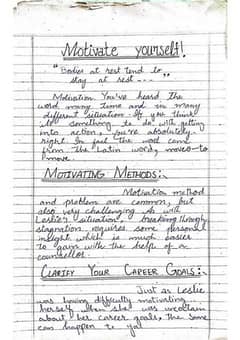 Motivate yourself!
"Bodies at rest tend to
stay at rest ---"
Motivation. You've heard the
word many time and in many
different situation. If you think
it's something to do with getting
into action, you're absolutely
right. In fact the word came
from the Latin word, moveo-to
move.
MOTIVATING METHODS:-
Motivation method
and problem are common, but
also very challenging. As with
Leslie's situation, breaking through
stagnation requires some personal
insight which is much easier
to gain with the help of a
counsellor.
CLARIFY YOUR CAREER GOALS:-
Just as Leslie
was having difficulty motivating
herself when she was uncertain
about her career goals, the same
can happen to you